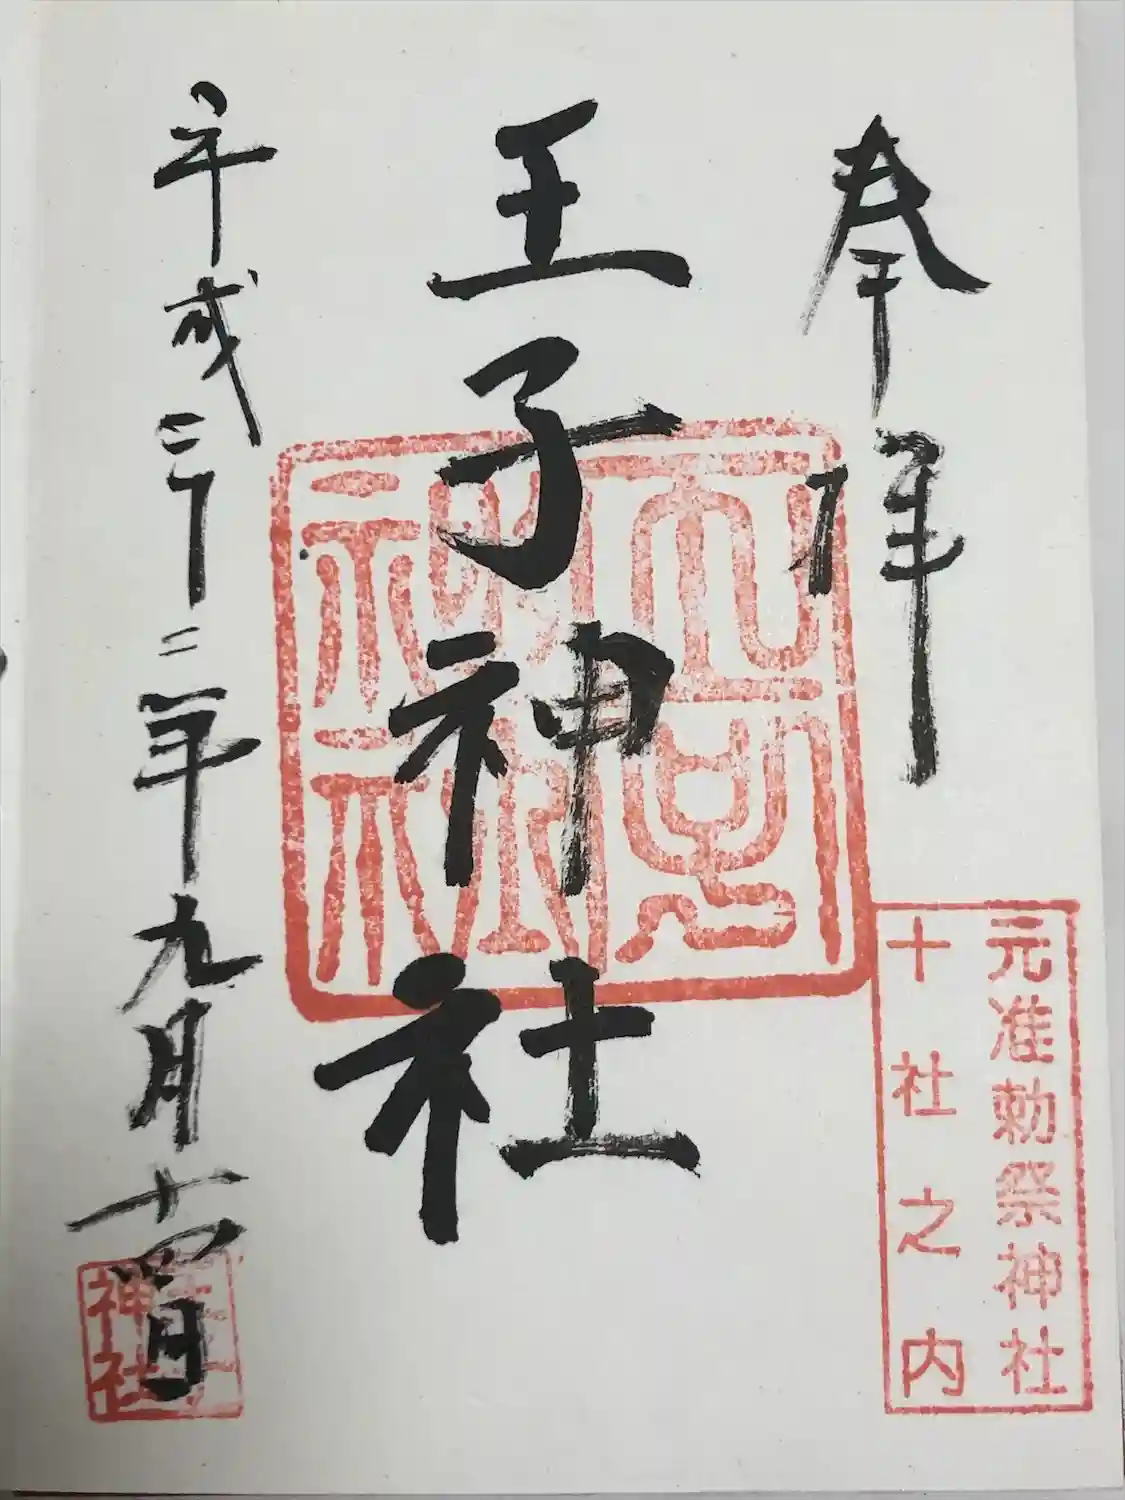 奉拝
元准勅祭神社
十社之内
王子神社
平成二十二年九月十四日
神社